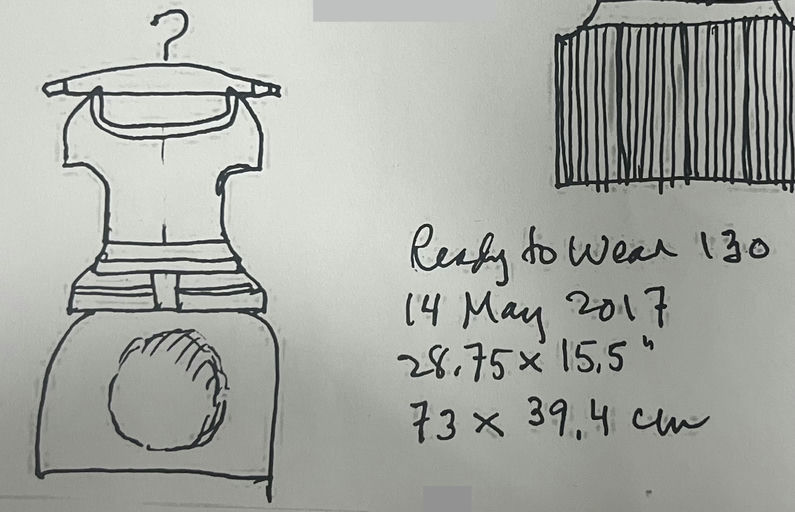 Ready to Wear 130
14 May 2017
28.75 x 15.5"
73 x 39.4 cm